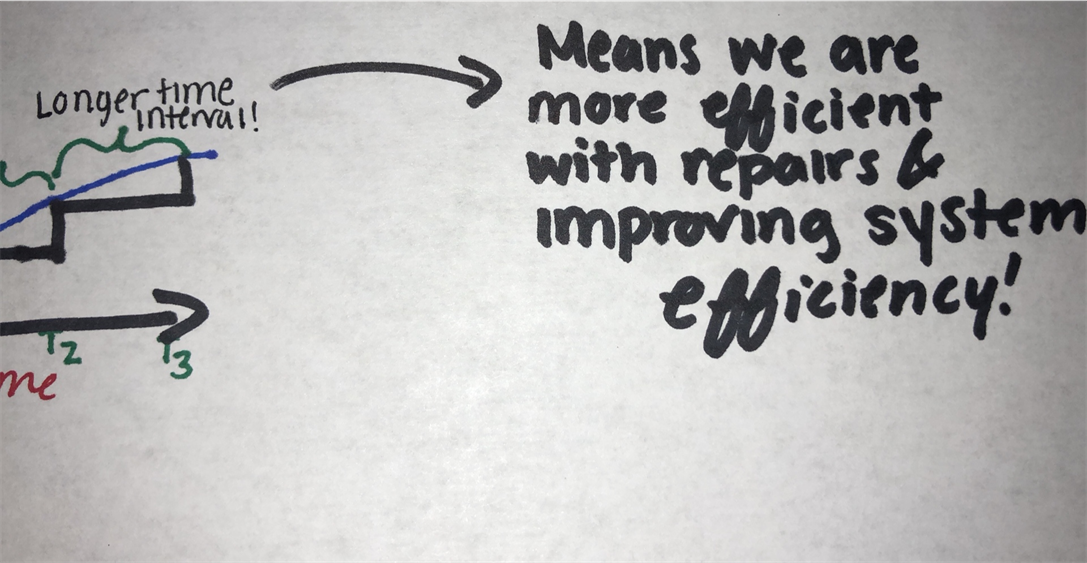 Longer time
interval!
Means we are
more efficient
with repairs &
improving system
efficiency!
T2
T3
me